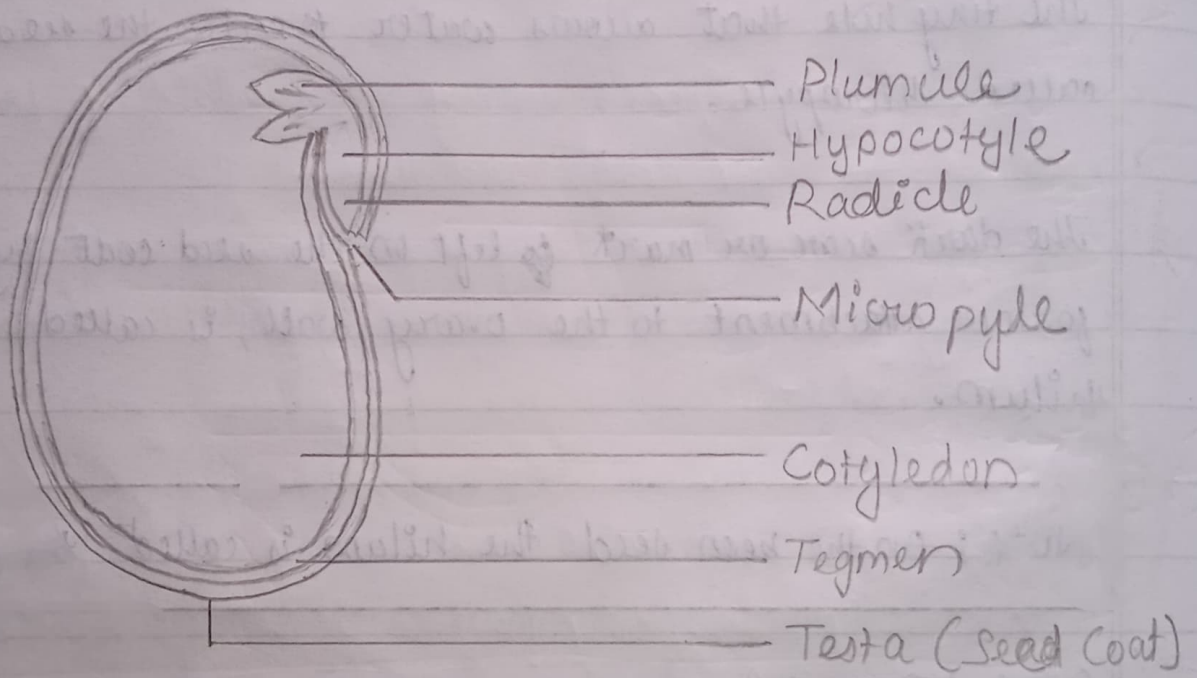 Plumule
Hypocotyle
Radicle
Micropyle
Cotyledon
Tegmen
Testa (Seed Coat)